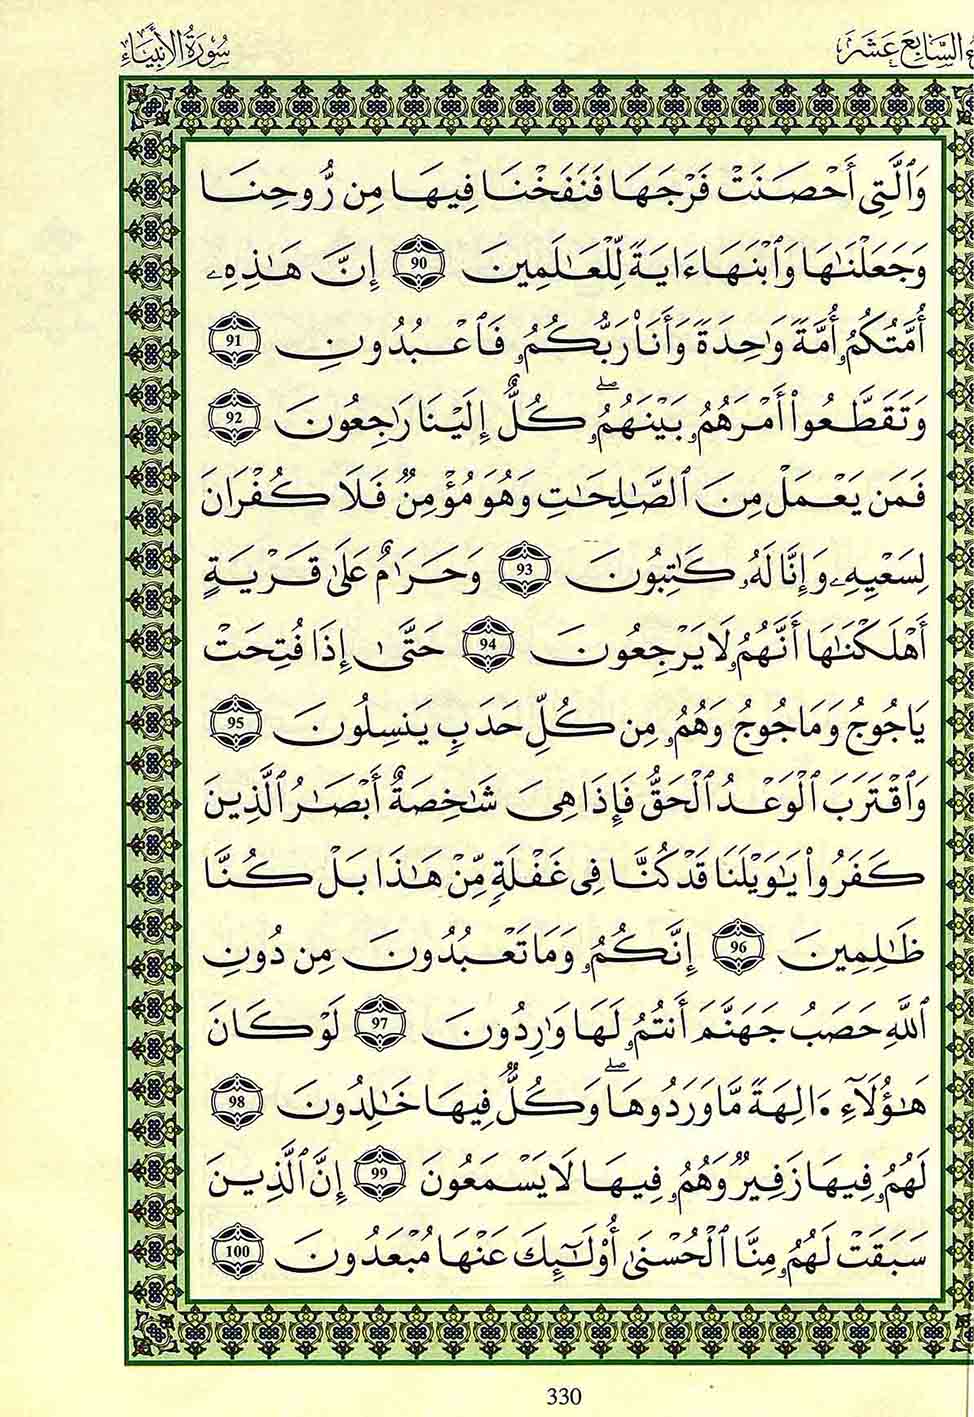 سُورَةُ الأَنْبِيَاءِ
السَّابِعَ عَشَرَ
وَٱلَّتِى أَحْصَنَتْ فَرْجَهَا فَنَفَخْنَا فِيهَا مِن رُّوحِنَا
وَجَعَلْنَٰهَا وَٱبْنَهَا ءَايَةً لِّلْعَٰلَمِينَ 90 إِنَّ هَٰذِهِۦ
أُمَّتُكُمُۥ أُمَّةً وَٰحِدَةً وَأَنَا۠ رَبُّكُمُۥ فَٱعْبُدُونِ 91
وَتَقَطَّعُوا۟ أَمْرَهُمُۥ بَيْنَهُمُۥۖ كُلٌّ إِلَيْنَا رَٰجِعُونَ 92
فَمَن يَعْمَلْ مِنَ ٱلصَّٰلِحَٰتِ وَهُوَ مُؤْمِنٌ فَلَا كُفْرَانَ
لِسَعْيِهِۦ وَإِنَّا لَهُۥ كَٰتِبُونَ 93 وَحَرَٰمٌ عَلَىٰ قَرْيَةٍ
أَهْلَكْنَٰهَا أَنَّهُمُۥ لَا يَرْجِعُونَ 94 حَتَّىٰ إِذَا فُتِحَتْ
يَاجُوجُ وَمَاجُوجُ وَهُمُۥ مِن كُلِّ حَدَبٍ يَنسِلُونَ 95
وَٱقْتَرَبَ ٱلْوَعْدُ ٱلْحَقُّ فَإِذَا هِىَ شَٰخِصَةٌ أَبْصَٰرُ ٱلَّذِينَ
كَفَرُوا۟ يَٰوَيْلَنَا قَدْ كُنَّا فِى غَفْلَةٍ مِّنْ هَٰذَا بَلْ كُنَّا
ظَٰلِمِينَ 96 إِنَّكُمُۥ وَمَا تَعْبُدُونَ مِن دُونِ
ٱللَّهِ حَصَبُ جَهَنَّمَ أَنتُمُۥ لَهَا وَٰرِدُونَ 97 لَوْ كَانَ
هَٰؤُلَآءِ ءَالِهَةً مَّا وَرَدُوهَاۖ وَكُلٌّ فِيهَا خَٰلِدُونَ 98
لَهُمُۥ فِيهَا زَفِيرٌ وَهُمُۥ فِيهَا لَا يَسْمَعُونَ 99 إِنَّ ٱلَّذِينَ
سَبَقَتْ لَهُمُۥ مِنَّا ٱلْحُسْنَىٰ أُو۟لَٰٓئِكَ عَنْهَا مُبْعَدُونَ 100
330